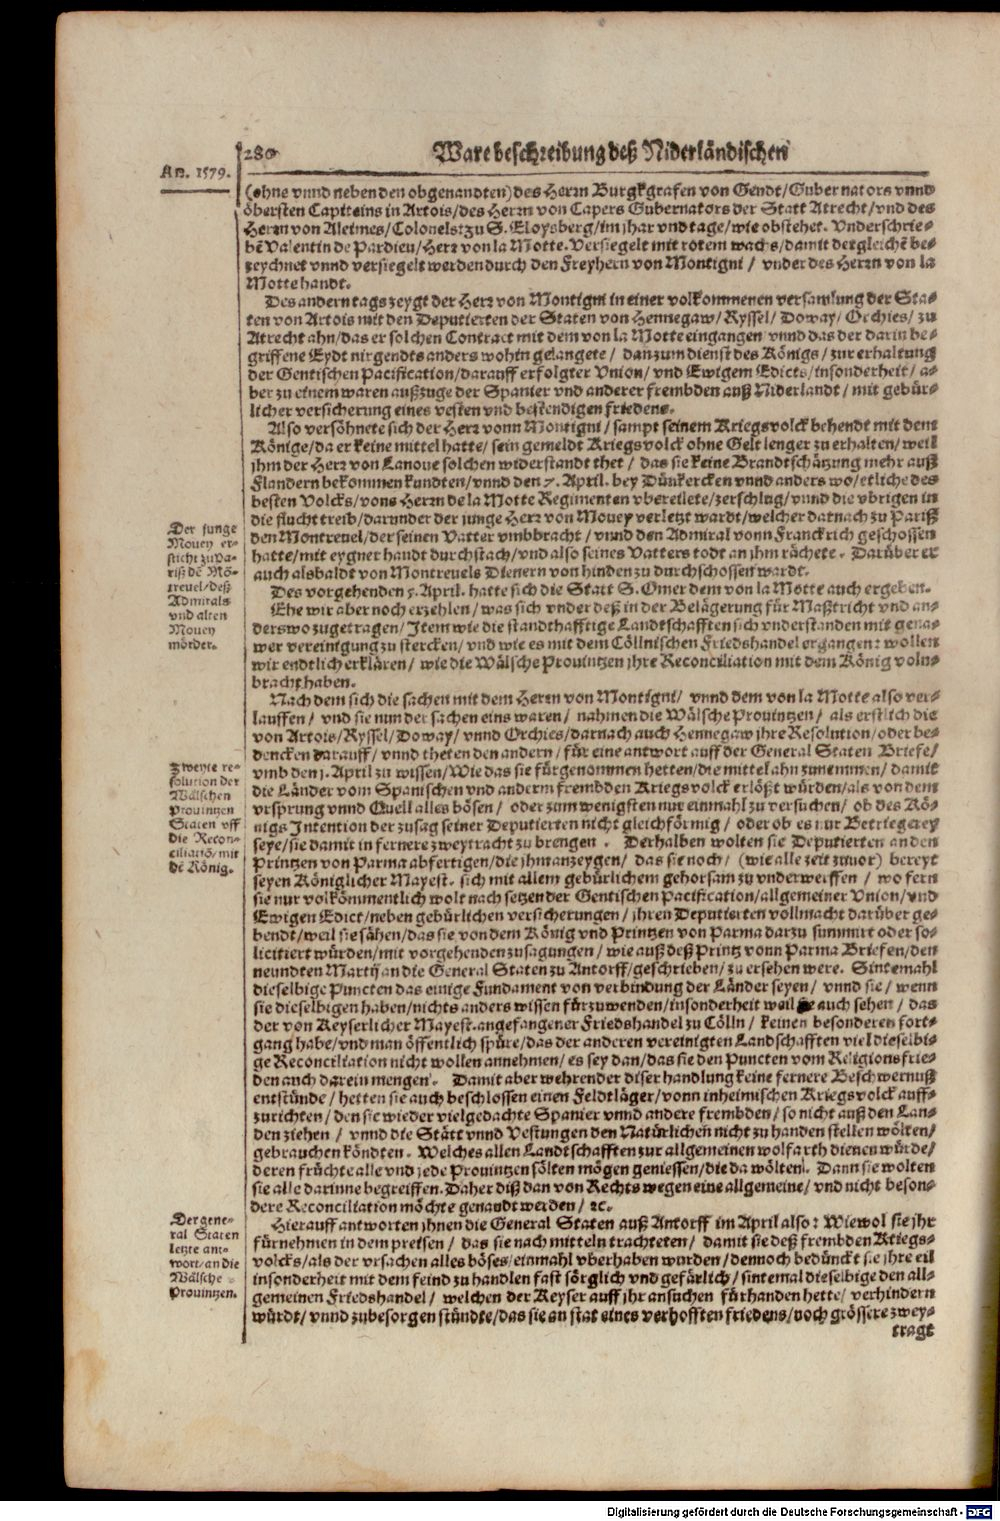 280
Ware beschreibung deß Niderländischen
An. 1579.
(ohne vnnd neben den obgenandten) des Herrn Burgkgrafen von Gendt/Gubernators vnnd
öbersten Capiteins in Artois/des Herrn von Capers Gubernators der Statt Atrecht/vnd des
Herrn von Aleimes/Colonels: zu S. Eloysberg/im jhar vnd tage/wie obstehet. Vnderschrie-
bē Valentin de Pardieu/Herr von la Motte. Versiegelt mit rotem wachs/damit dergleichē be-
zeychnet vnnd versiegelt werden durch den Freyhern von Montigni/ vnder des Herrn von la
Motte handt.
Des andern tags zeygt der Herr von Montigni in einer volkommenen versamlung der Sta-
ten von Artois mit den Deputierten der Staten von Hennegaw/Ryssel/Doway/Orchies/zu
Atrecht ahn/das er solchen Contract mit dem von la Motte eingangen/vnnd das der darin be-
griffene Eydt nirgendts anders wohin gelangete/ dan zum dienst des Königs/zur erhaltung
der Gentischen Pacification/darauff erfolgter Vnion/vnd Ewigem Edicts/insonderheit/a-
ber zu einem waren außzuge der Spanier vnd anderer frembden auß Niderlandt/mit gebür-
licher versicherung eines vesten vnd bestendigen friedens.
Also versöhnete sich der Herr vonn Montigni/sampt seinem Kriegsvolck behendt mit dem
Könige/da er keine mittel hatte/sein gemeldt Kriegsvolck ohne Gelt lenger zu erhalten/weil
jhm der Herr von Lanoue solchen widerstandt thet/ das sie keine Brandtschätzung mehr auß
Flandern bekommen kundten/vnnd den 7. April. bey Dünkercken vnnd anders wo/etliche des
besten Volcks/vons Herrn de la Motte Regimenten vbereilete/zerschlug/vnnd die vbrigen in
die flucht treib/darunder der junge Herr von Mouey verletzt wardt/welcher darnach zu Pariß
den Montreuel/der seinen Vatter vmbbracht/vnnd den Admiral vonn Franckrich geschossen
hatte/mit eygner handt durchstach/vnd also seines Vatters todt an jhm rächete. Darüber er
auch alsbaldt von Montreuels Dienern von hinden zu durchschossen wardt.
Der junge
Mouey er-
sticht zu Pa-
riß dē Mō-
treuel/deß
Admirals
vnd alten
Mouey
mörder.
Des vorgehenden 5. April. hatte sich die Statt S. Omer dem von la Motte auch ergeben.
Ehe wir aber noch erzehlen/was sich vnder deß in der Belägerung für Maßtricht vnd an-
derswo zugetragen/Item wie die standthafftige Landtschafften sich vnderstanden mit gena-
wer vereinigung zu stercken/vnd wie es mit dem Cöllnischen Friedshandel ergangen: wollen
wir endtlich erklären/ wie die Wälsche Prouintzen jhre Reconciliation mit dem König voln-
bracht haben.
Nach dem sich die sachen mit dem Herrn von Montigni/ vnnd dem von la Motte also ver-
lauffen/ vnd sie nun der sachen eins waren/ nahmen die Wälsche Prouintzen/ als erstlich die
von Artois/Ryssel/Doway/vnnd Orchies/darnach auch Hennegaw jhre Resolution/oder be-
dencken darauff/vnnd theten den andern/für eine antwort auff der General Staten Briefe/
vmb den 5. April zu wissen/Wie das sie fürgenommen hetten/die mittel ahn zunemmen/damit
die Länder vom Spanischen vnd anderm frembden Kriegsvolck erlößt würden/als von dem
vrsprung vnnd Quell alles bösen/ oder zum wenigsten nur einmahl zu versuchen/ ob des Kö-
nigs Intention der zusag seiner Deputierten nicht gleichförmig/ oder ob es nur Betriegerey
seye/sie damit in fernere zweytracht zu brengen. Derhalben wolten sie Deputierten an den
Printzen von Parma abfertigen/die jhm anzeygen/ das sie noch/ (wie alle zeit zuuor) bereyt
seyen Königlicher Mayest. sich mit allem gebürlichem gehorsam zu vnderwerffen/ wo fern
Zweyte re-
solution der
Wälschen
Prouintzen
Staten vff
die Recon-
ciliatiō/mit
dē König.
sie nur volkömmentlich wolt nach setzen der Gentischen Pacification/allgemeiner Vnion/vnd
Ewigen Edict/neben gebürlichen versicherungen/ jhren Deputierten vollmacht darüber ge-
bendt/weil sie sähen/das sie von dem König vnd Printzen von Parma darzu summirt oder so-
licitiert würden/mit vorgehenden zusagungen/ wie auß deß Printz vonn Parma Briefen/den
neundten Martij an die General Staten zu Antorff/geschrieben/zu ersehen were. Sintemahl
dieselbige Puncten das einige Fundament von verbindung der Länder seyen/ vnnd sie/ wenn
sie dieselbigen haben/nichts anders wissen fürzuwenden/insonderheit weil sie auch sehen/ das
der von Keyserlicher Mayest. angefangener Friedshandel zu Cölln/ keinen besonderen fort-
gang habe/vnd man öffentlich spüre/das der anderen vereinigten Landschafften viel dieselbi-
ge Reconciliation nicht wollen annehmen/es sey dan/das sie den Puncten vom Religionsfrie-
den auch darein mengen. Damit aber wehrender diser handlung keine fernere Beschwernuß
entstünde/hetten sie auch beschlossen einen Feldtläger/vonn inheimischen Kriegsvolck auff-
zurichten/den sie wieder vielgedachte Spanier vnnd andere frembden/so nicht auß den Lan-
den ziehen/ vnnd die Stätt vnnd Vestungen den Natürlichen nicht zu handen stellen wölten/
gebrauchen köndten. Welches allen Landtschafften zur allgemeinen wolfarth dienen würde/
deren früchte alle vnd jede Prouintzen sölten mögen geniessen/die da wölten. Dann sie wolten
sie alle darinne begreiffen. Daher diß dan von Rechts wegen eine allgemeine/ vnd nicht beson-
dere Reconciliation möchte genandt werden/ &c.
Hierauff antworten jhnen die General Staten auß Antorff im April also: Wiewol sie jhr
fürnehmen in dem preisen/ das sie nach mitteln trachteten/ damit sie deß frembden Kriegs-
volcks/als der vrsachen alles böses/einmahl vberhaben wurden/dennoch bedünckt sie jhre eil
insonderheit mit dem feind zu handlen fast sörglich vnd gefärlich/sintemal dieselbige den all-
gemeinen Friedshandel/ welchen der Keyser auff jhr ansuchen fürhanden hette/verhindern
würdt/vnnd zubesorgen stündte/das sie an stat eines verhofften friedens/noch grössere zwey-
tragt
Der gene-
ral Staten
letzte ant-
wort/an die
Wälsche
Prouintzen.
Digitalisierung gefördert durch die Deutsche Forschungsgemeinschaft - DFG